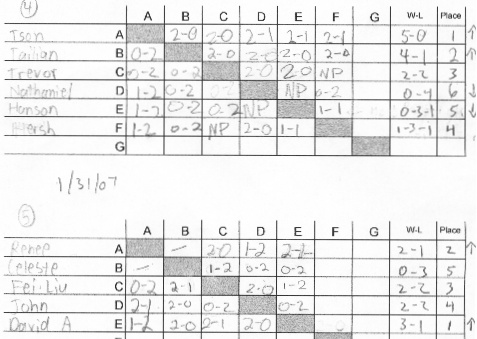 4
A B C D E F G W-L Place
Tson A 2-0 2-0 2-1 2-1 2-1 5-0 1 ↑
B 0-2 2-0 2-0 2-0 2-0 4-1 2 ↑
Trevor C 0-2 0-2 2-0 2-0 NP 2-2 3
Nathaniel D 1-2 0-2 0-2 NP 0-2 0-4 6 ↓
Hanson E 1-2 0-2 0-2 NP 1-1 0-3-1 5 ↓
F 1-2 0-2 NP 2-0 1-1 1-3-1 4
G
1/31/07
5
A B C D E F G W-L Place
A — 2-0 1-2 2-1 2-1 2 ↑
Celeste B — 1-2 0-2 0-2 0-3 5
Fei-Liu C 0-2 2-1 2-0 1-2 2-2 3
John D 2-1 2-0 0-2 0-2 2-2 4
David A E 1-2 2-0 2-1 2-0 3-1 1 ↑